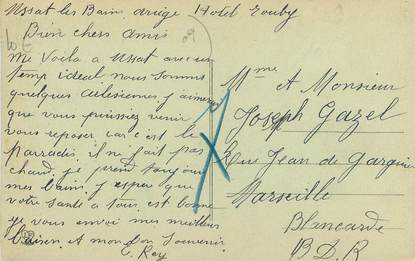 Ussat les Bain ariège Hotel
Bien chers amis
me Voila a Ussat avec un
temp ideal nous somme
quelques arlesiennes j'aimerai
que vous puissiez venir
vous reposer car c'est le
parradis il ne fait pas
chaud. je prend toujour
mes bain. j'espere que
votre santé a tous est bonne
je vous envoi mes meilleur
baiser et mon bon souvenir
Rey
Mme et Monsieur
Joseph Gazel
Rue Jean de
Marseille
Blancarde
B.D.R